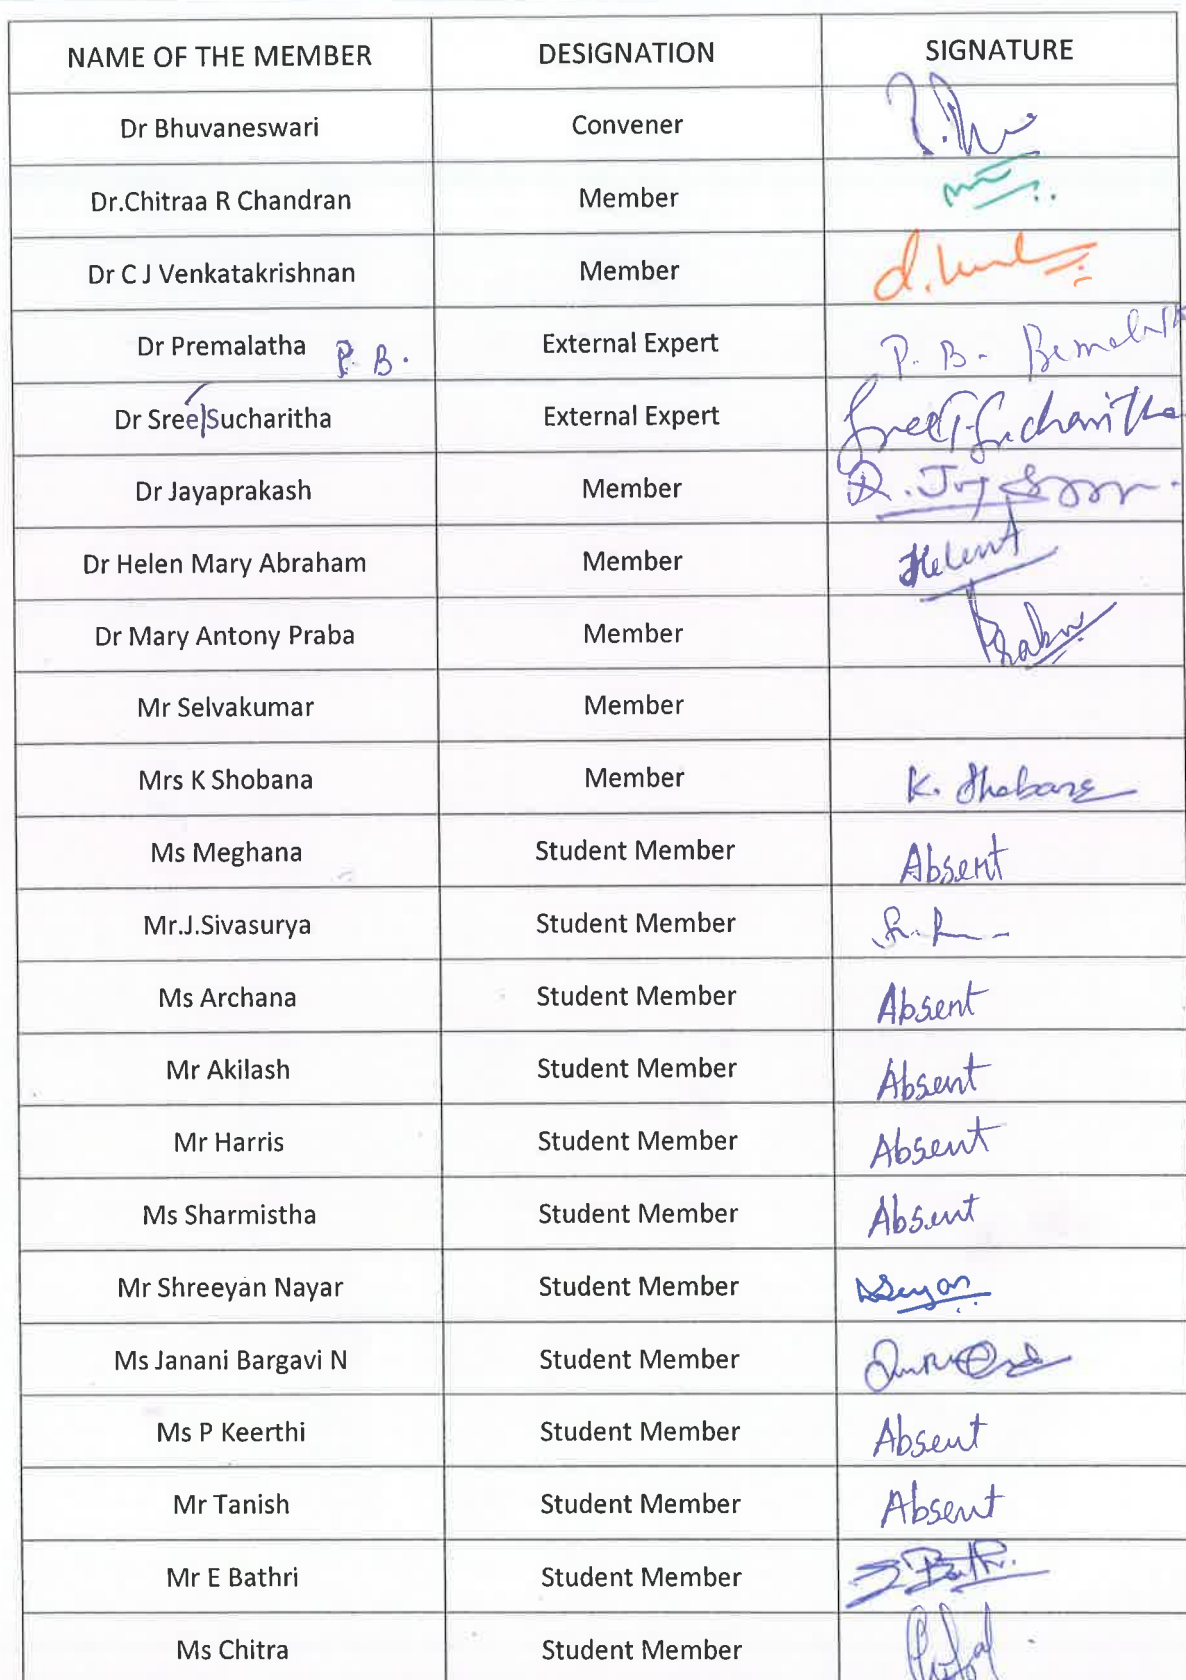 NAME OF THE MEMBER DESIGNATION SIGNATURE
Dr Bhuvaneswari Convener
Dr.Chitraa R Chandran Member
Dr C J Venkatakrishnan Member
Dr Premalatha P. B. External Expert P. B.
Dr Sree Sucharitha External Expert Sree T. Sucharitha
Dr Jayaprakash Member
Dr Helen Mary Abraham Member Helen
Dr Mary Antony Praba Member
Mr Selvakumar Member
Mrs K Shobana Member K. Shobana
Ms Meghana Student Member Absent
Mr.J.Sivasurya Student Member
Ms Archana Student Member Absent
Mr Akilash Student Member Absent
Mr Harris Student Member Absent
Ms Sharmistha Student Member Absent
Mr Shreeyan Nayar Student Member
Ms Janani Bargavi N Student Member
Ms P Keerthi Student Member Absent
Mr Tanish Student Member Absent
Mr E Bathri Student Member
Ms Chitra Student Member